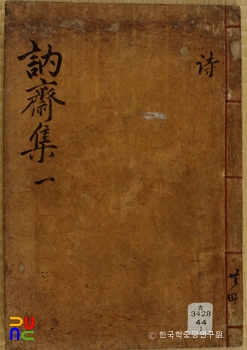 詩
訥齋集 一
共四
3428
44
ⓒ 한국학중앙연구원